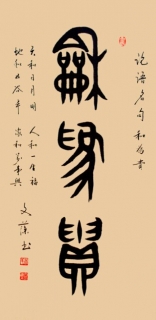 论语名句 和为贵
龢為貴
天和日月明 人和一生福
地和五谷丰 家和万事兴